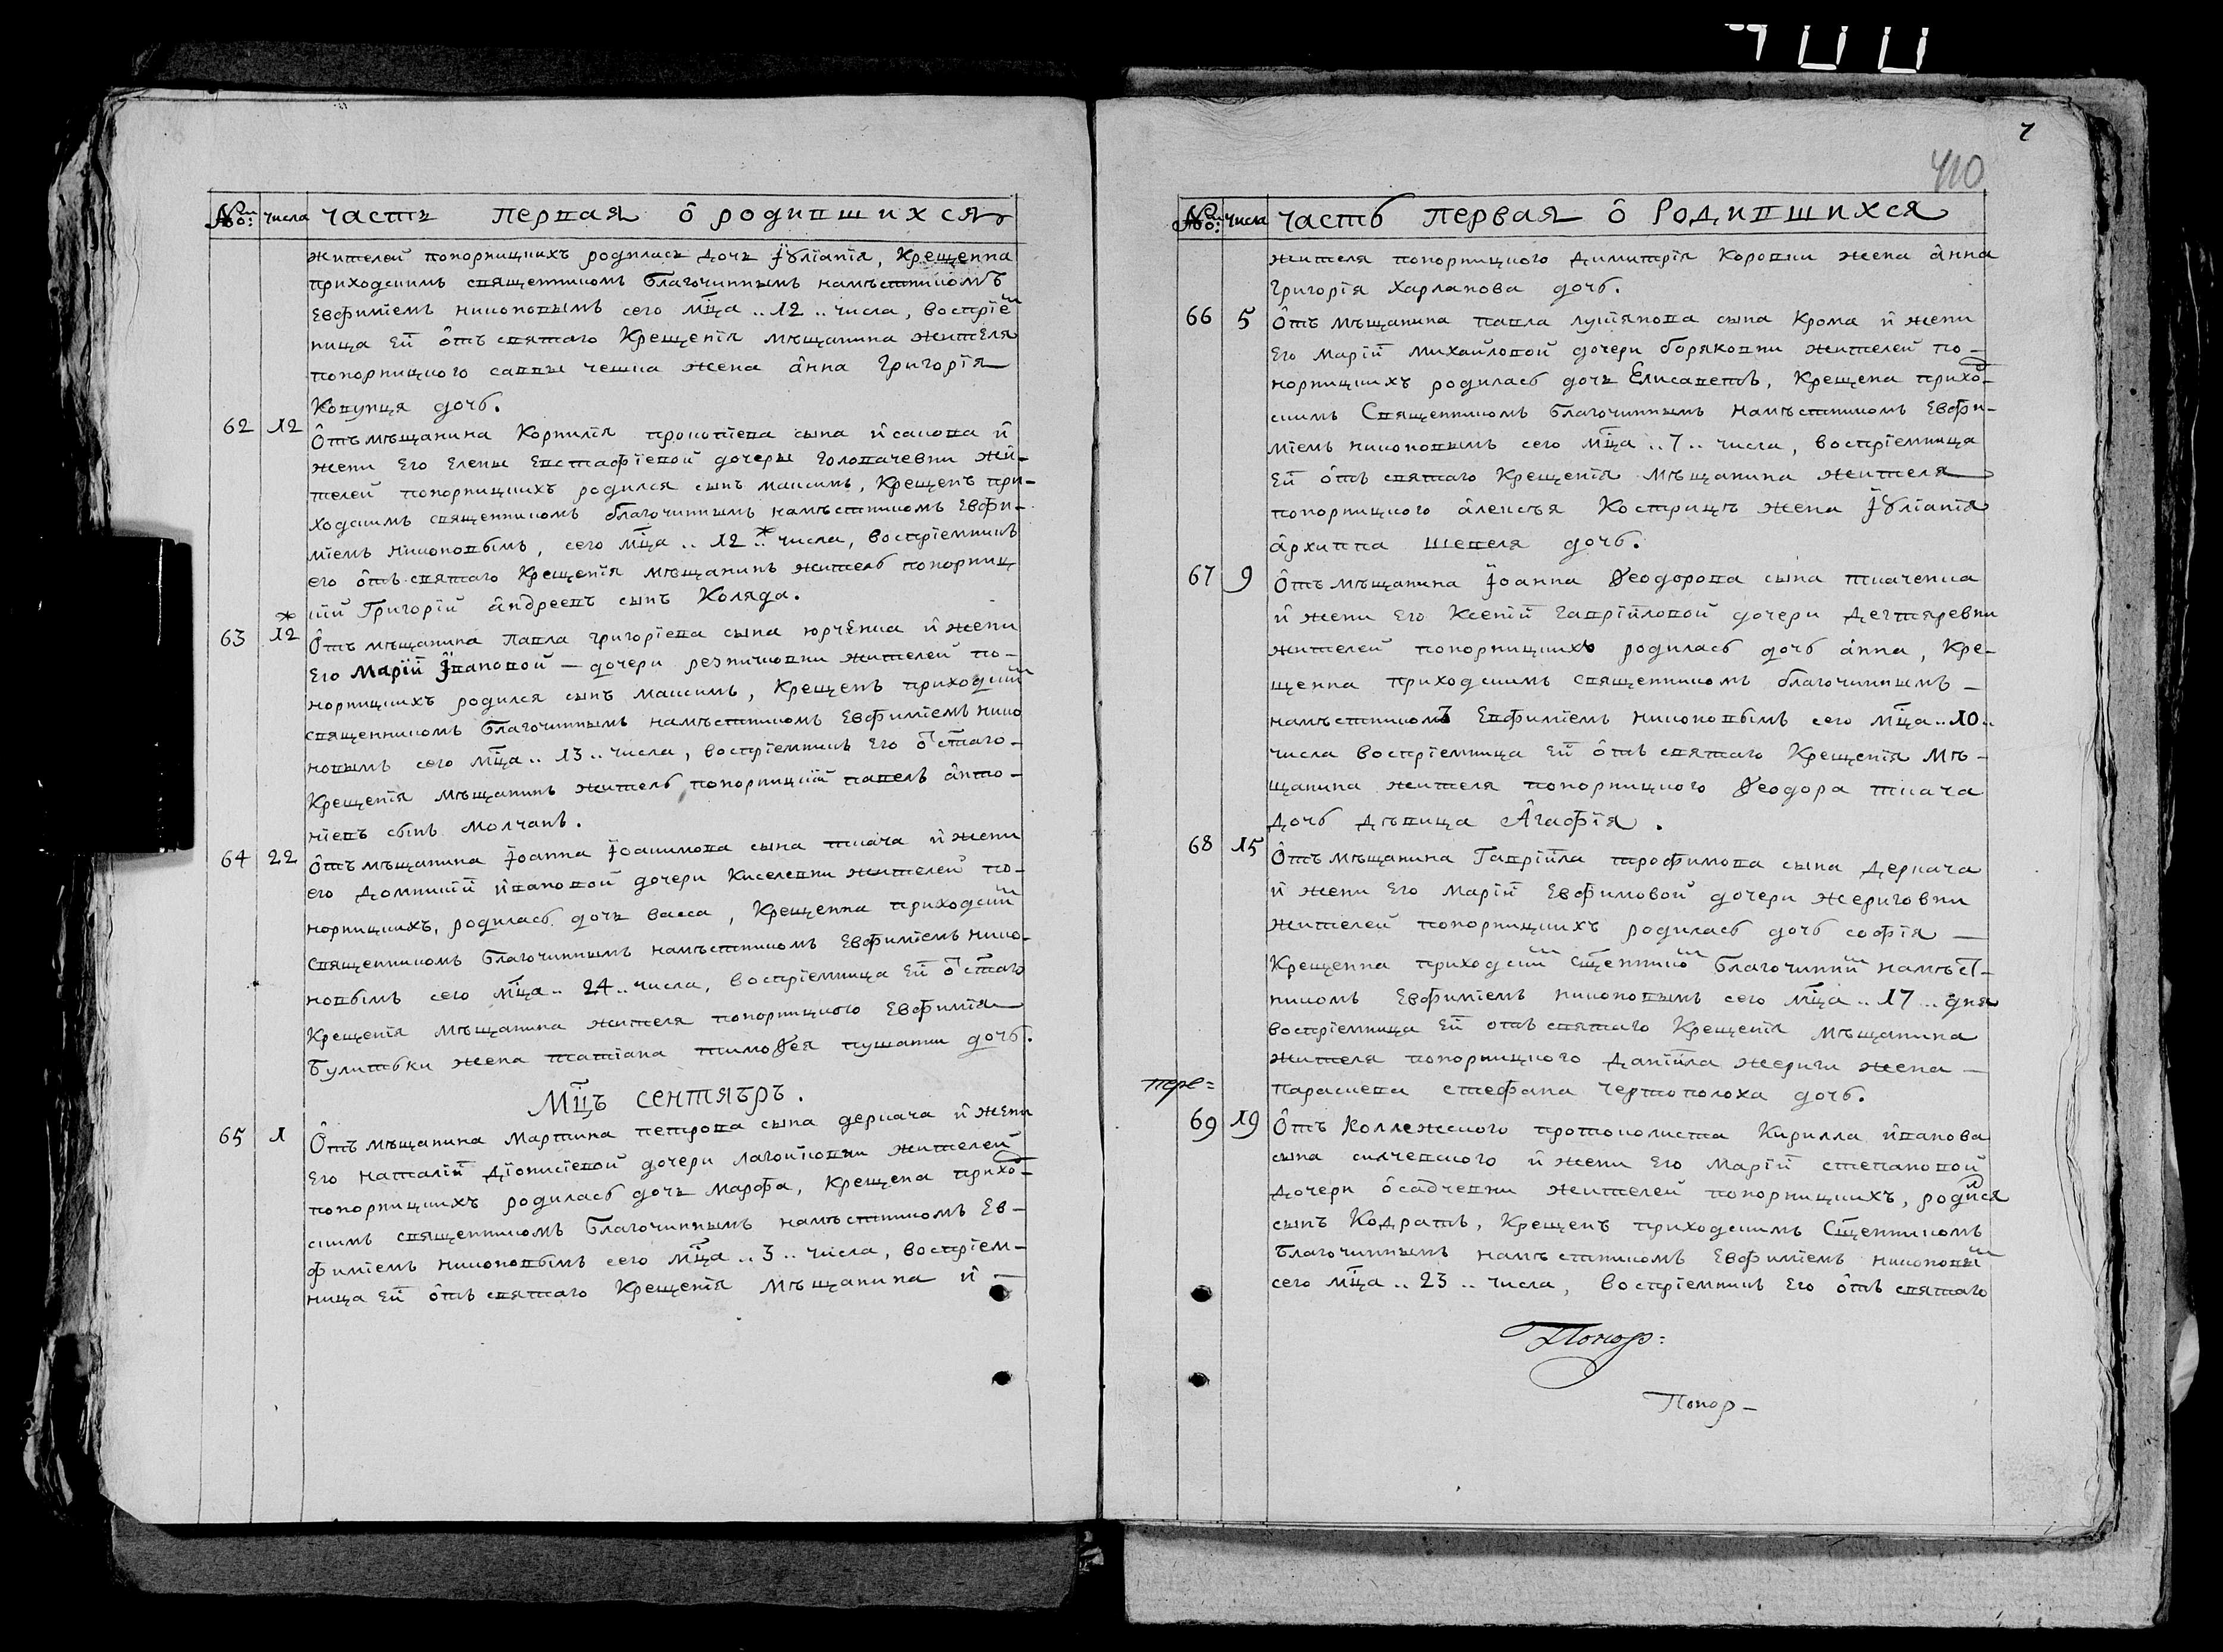 №: числа часть первая ô родившихся
жителей понорницкихъ родилась дочь Іȣліанія, Крещенна
приходскимъ священникомъ благочиннымъ намѣстникомъ
Евфиміемъ никоновымъ сего мца .. 12 .. числа, воспріе м
ница Ей ôтъ святаго Крещенія мѣщанина жителя
понорницкого саввы чешка жена âнна Григорія
Ковунця дочь.
62 12 Ôтъ мѣщанина Корнилія прокопіева сына исакова и
жени Его Елены Евстафіевой дочеры Головачевни жи-
телей понорницкихъ родился сынъ максимъ, Крещенъ при-
ходскимъ священникомъ благочиннымъ намѣстникомъ Евфи-
міемъ никоновымъ, сего мца .. 12 * .. числа, воспріемникъ
его ôтъ святаго Крещенія мѣщанинъ житель понорниц
* кій Григорій âндреевъ сынъ Коляда.
63 12 Ôтъ мѣщанина Павла григоріева сына юрченка и жени
Его Марій Івановой — дочери резничковни жителей по-
норницкихъ родился сынъ максимъ, Крещенъ приходски м
священникомъ благочиннымъ намѣстникомъ Евфиміемъ нико
новымъ сего мца .. 13 .. числа, воспріемникъ Его ô т стаго-
Крещенія мѣщанинъ житель понорницкій павелъ âнто-
ніевъ сынъ молчанъ.
64 22 ôтъ мѣщанина Іоанна Іоакимова сына ткача и жени
его домникій ивановой дочери Киселевни жителей по-
норницкихъ, родилась дочь васса, Крещенна приходски м
священникомъ благочиннымъ намѣстникомъ Евфиміемъ нико-
новымъ сего мца .. 24 .. числа, воспріемница Ей ô т стаго
Крещенія мѣщанина жителя понорницкого Евфимія
булитбки жена татіана тимоѳея пушанки дочь.
Мцъ сентябрь.
65 1 Ôтъ мѣщанина мартина петрова сына деркача и жени
Его наталій діонисіевой дочери лагойковни жителей
понорницкихъ родилась дочь марфа, крещена приход-
скимъ священникомъ благочиннымъ намѣстникомъ Ев-
фиміемъ никоновымъ сего мца .. 3 .. числа, воспріем-
ница Ей ôтъ святаго Крещенія мѣщанина и —
7
410
№: числа часть первая ô Родившихся
жителя понорницкого димитрія Коровки жена âнна
григорія харланова дочь.
66 5 Ôтъ мѣщанина павла лукіянова сына Крома и жени
Его марій михайловой дочери боряковни жителей по-
норницкихъ родилась дочь Елисаветъ, Крещена приход-
скимъ Священникомъ благочиннымъ намѣстникомъ Евфи-
міемъ никоновымъ сего мца .. 7 .. числа, воспріемница
Ей ôтъ святаго Крещенія мѣщанина жителя
понорницкого âлексѣя Кострицѣ жена Іȣліанія
âрхиппа шевеля дочь.
67 9 Ôтъ мѣщанина Іоанна Ѳеодорова сына ткаченка
и жени Его Ксеній гавріиловой дочери дегтяревни
жителей понорницкихъ родилась дочь âнна, Кре-
щенна приходскимъ священникомъ благочиннымъ —
намѣстникомъ Евфиміемъ никоновымъ сего мца .. 10 ..
числа воспріемница Ей ôтъ святаго Крещенія мѣ-
щанина жителя понорницкого Ѳеодора ткача
дочь дѣвица Âгафія.
68 15 Ôтъ мѣщанина Гавріила трофимова сына деркача
и жени Его марій Евфимовой дочери жериговни
жителей понорницкихъ родилась дочь софія —
Крещенна приходски м Сщеннико м благочинни м намѣст-
никомъ Евфиміемъ никоновымъ сего мца .. 17 .. дня
воспріемница Ей отъ святаго Крещенія мѣщанина
жителя понорницкого даніила жериги жена —
параскева стефана чертополоха дочь.
69 19 Ôтъ Коллежского протоколиста Кирилла иванова
сына силчевского и жени Его марій степановой
дочери ôсадчевни жителей понорницкихъ, родился
сынъ Кодратъ, Крещенъ приходскимъ Сщенникомъ
благочиннымъ намѣстникомъ Евфиміемъ никоновы м
сего мца .. 23 .. числа, воспріемникъ Его ôтъ святаго
Понор:
Понор-